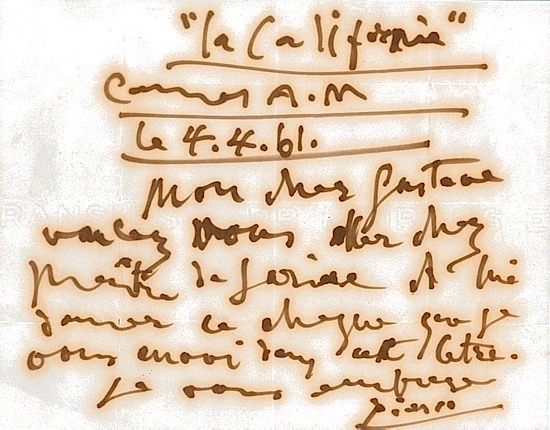 "la Californie"
Cannes A.M
le 4.4.61.
Mon cher Gustave
voulez vous aller chez
de et lui
donner ce cheque que je
vous envoi dans cette letre.
je vous embrasse
Picasso